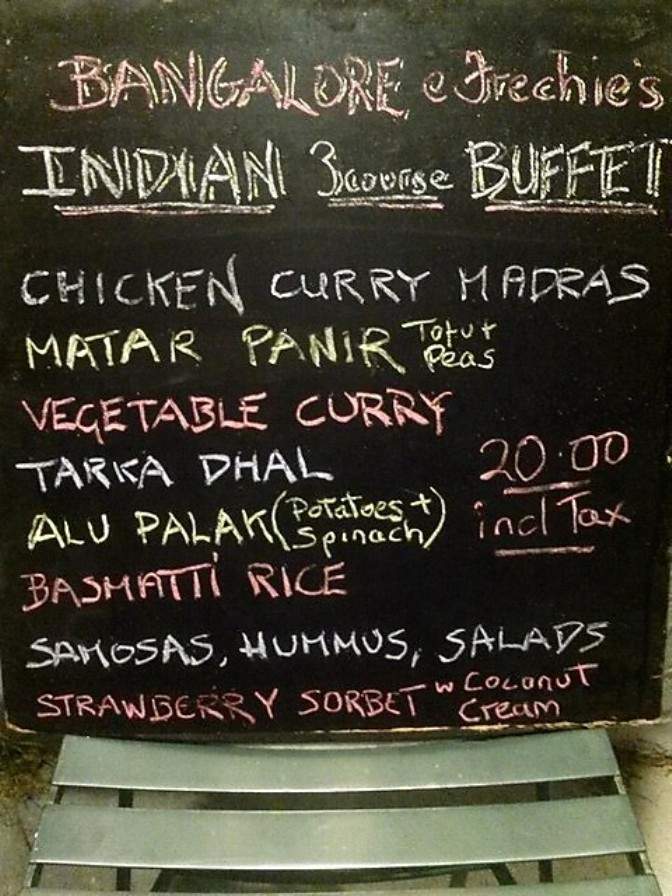 BANGALORE e Frechie's
INDIAN 3 course BUFFET
CHICKEN CURRY MADRAS
MATAR PANIR Tofu + Peas
VEGETABLE CURRY
TARKA DHAL
20.00
ALU PALAK (Potatoes + Spinach)
incl Tax
BASMATTI RICE
SAMOSAS, HUMMUS, SALADS
STRAWBERRY SORBET w Coconut Cream